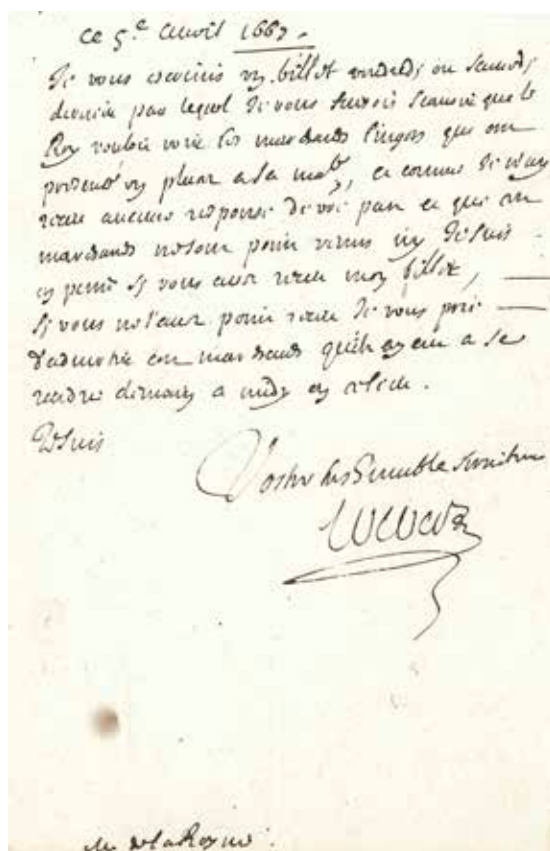 ce 5.e Auril 1667.
Je vous escriuis un billet vendredy ou samedy
dernier par lequel Je vous faisois scauoir que le
Roy vouloit voir les marchands lingers qui ont
presenté un placet a sa ma.té, et comme Je n'ay
receu aucune response de vr̃e part et que ces
marchands ne sont point venus icy Je suis
en peine sy vous auez receu mon billet,
sy vous ne l'auez point receu Je vous prie
d'aduertir ces marchands qu'ils ayent a se
rendre demain a midy en
Je suis
Vostre tres humble seruiteur
M. de la Reynie.